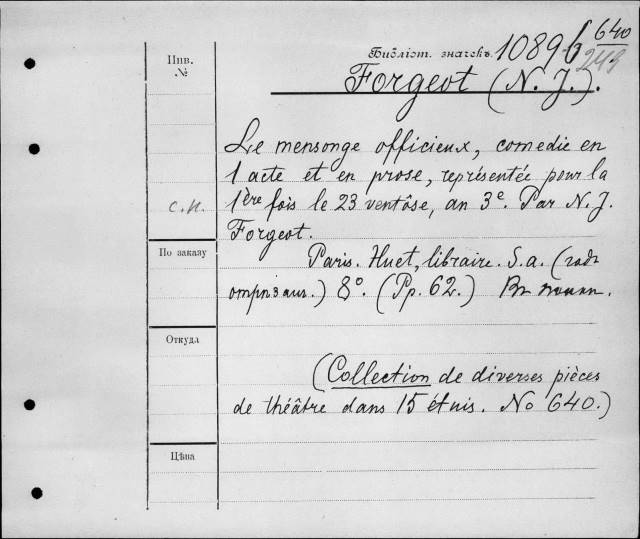 Инв. №
Библіот. значекъ 10896 640
243
Forgeot (N. J.).
Le mensonge officieux, comedie en
1 acte et en prose, représentée pour la
с.н. 1ère fois le 23 ventôse, an 3e. Par N. J.
Forgeot.
По заказу
Paris. Huet, libraire. S.a. (годъ
отрѣзанъ.) 8°. (Pp. 62.) Въ
Откуда
(Collection de diverses pièces
de théâtre dans 15 étuis. No 640.)
Цѣна